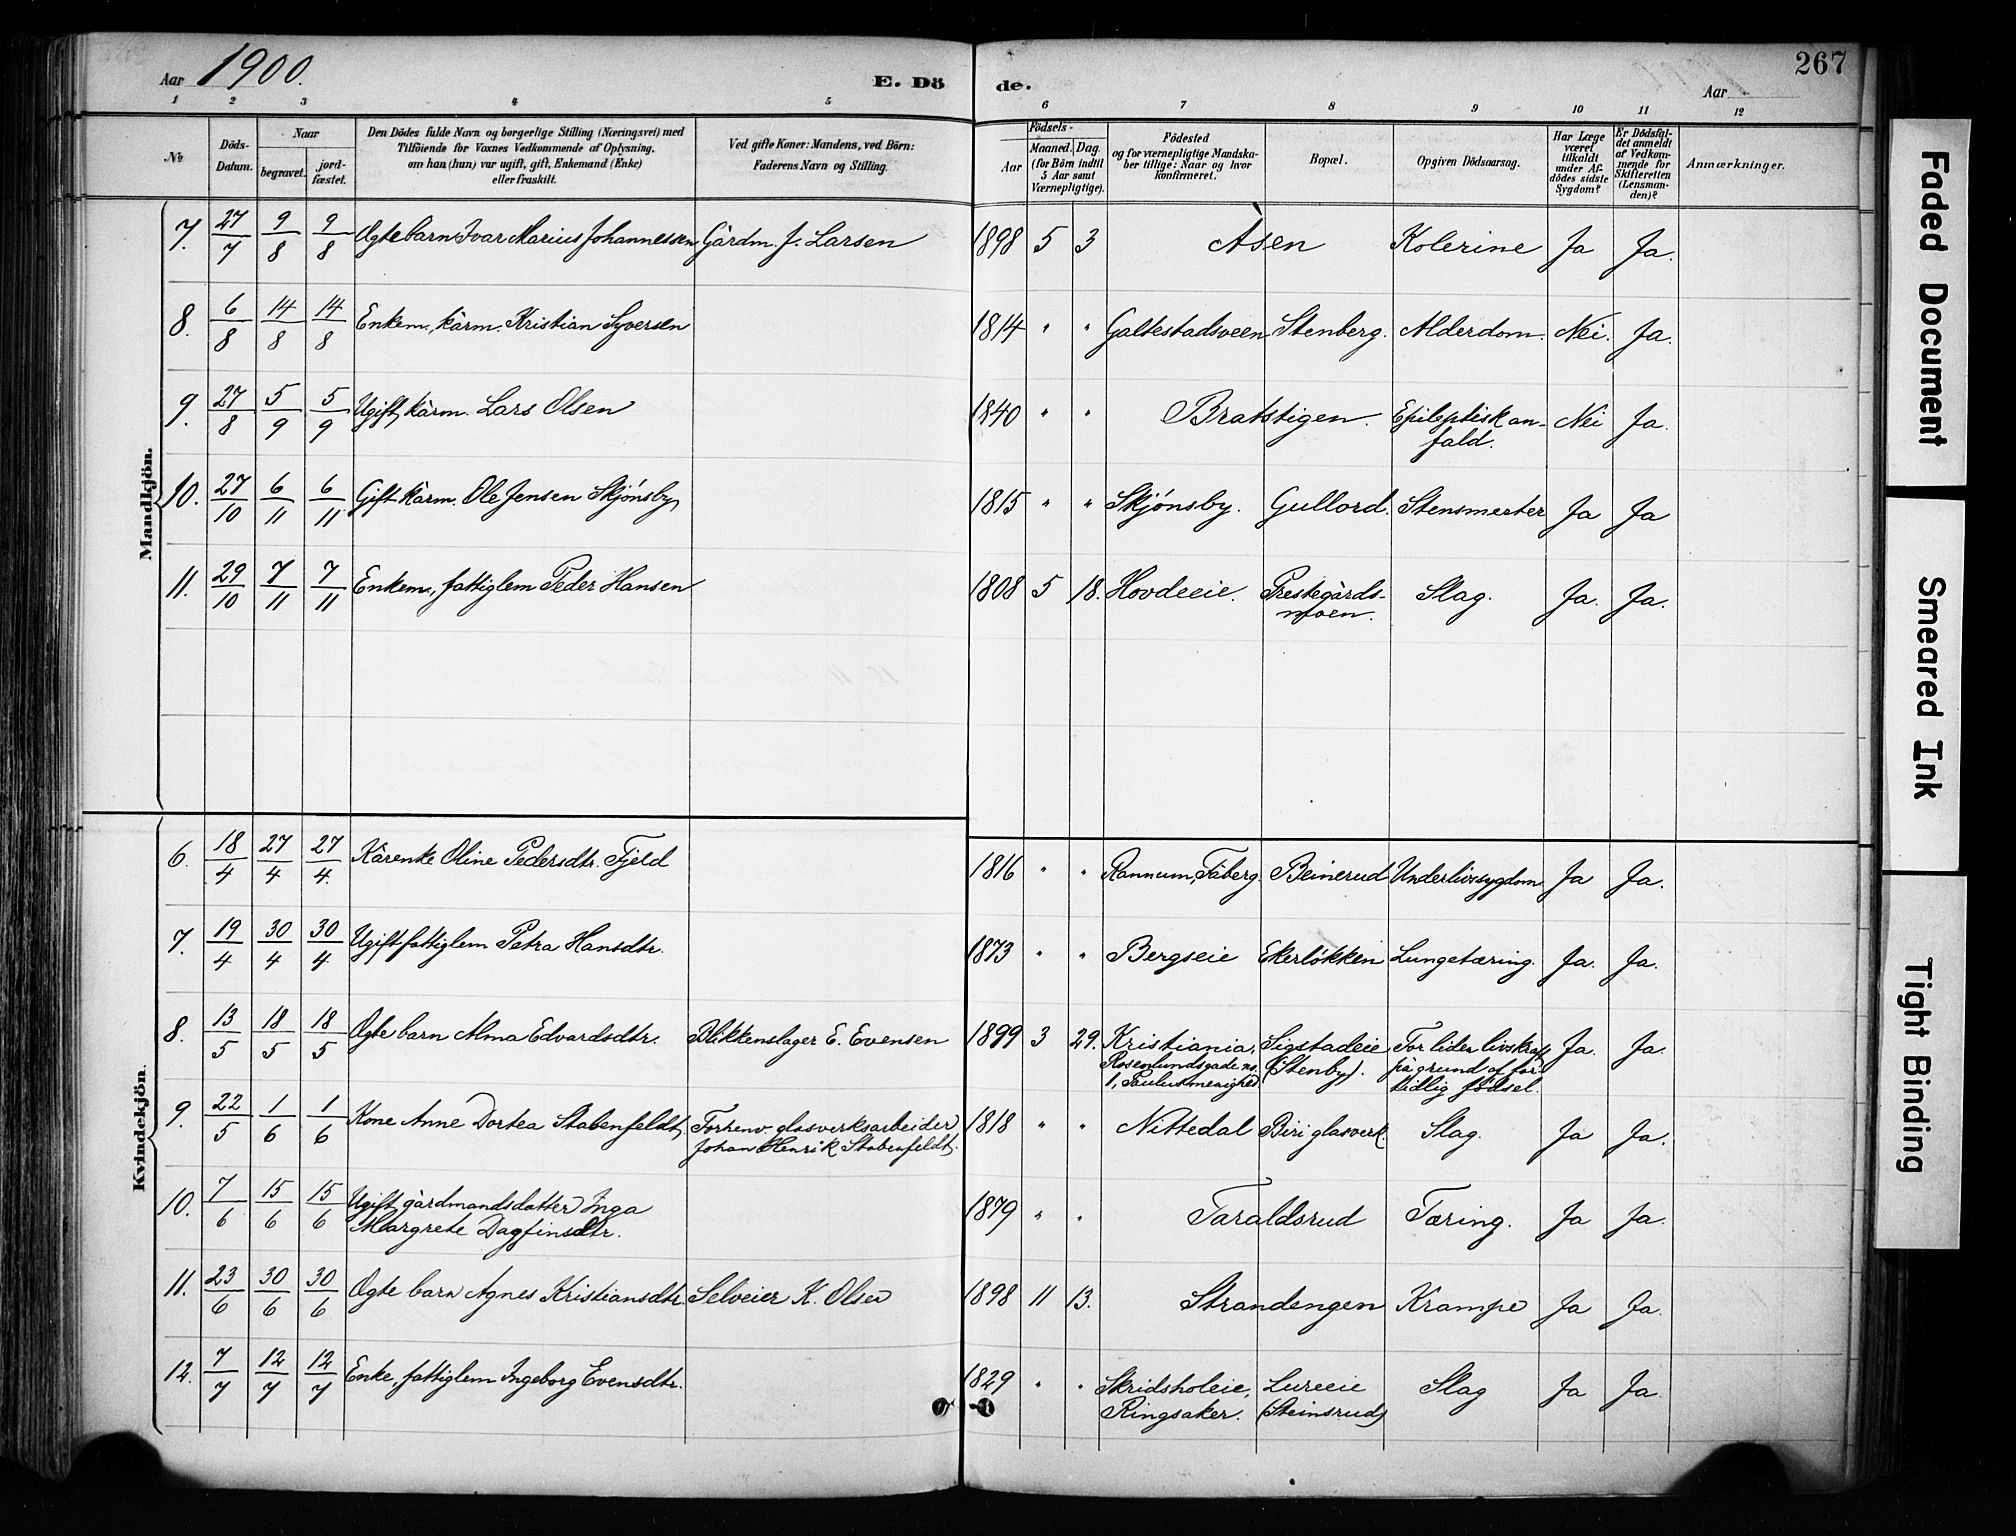 Aar 1900.
E. Dö de.
267
Aar
1 2 3 4 5 6 7 8 9 10 11 12
No
Döds-Datum.
Naar
begravet.
jord-fæstet.
Den Dödes fulde Navn og borgerlige Stilling (Næringsvei) med
Tilföiende for Voxnes Vedkommende af Oplysning,
om han (hun) var ugift, gift, Enkemand (Enke)
eller fraskilt.
Ved gifte Koner: Mandens, ved Börn:
Faderens Navn og Stilling.
Födsels-
Aar
Maaned. Dag.
(for Börn indtil
5 Aar samt
Værnepligtige).
Födested
og for værnepligtige Mandska-
ber tillige: Naar og hvor
konfirmeret.
Bopæl.
Opgiven Dödsaarsag.
Har Læge
været
tilkaldt
under Af-
dödes sidste
Sygdom?
Er Dödsfal-
det anmeldt
af Vedkom-
mende for
Skifteretten
(Lensman-
den)?
Anmærkninger.
Mandkjön.
7. 27/7 9/8 9/8 Ægte barn Ivar Marius Johannessen Gårdm. J. Larsen 1898 5 3 Åsen Kolerine Ja Ja.
8. 6/8 14/8 14/8 Enkem., kårm. Kristian Syversen 1814 " " Galtestadsveen Stenberg. Alderdom. Nei. Ja.
9. 27/8 5/9 5/9 Ugift kårm. Lars Olsen 1840 " " Bratstigen. Epileptisk an-
fald. Nei Ja.
10. 27/10 6/11 6/11 Gift kårm. Ole Jensen Skjónsby 1815 " " Skjónsby. Gullord. Stensmerter Ja Ja
11. 29/10 7/11 7/11 Enkem., fattiglem Peder Hansen 1808 5 18. Hovdeeie. Prestegårds-
moen. Slag. Ja. Ja.
Kvindekjön.
6. 18/4 27/4 27/4. Kårenke Oline Pedersdtr. Fjeld 1816 " " Rannum, Fåberg. Beinerud Underlivssygdom Ja Ja.
7. 19/4 30/4 30/4 Ugift fattiglem Petra Hansdtr. 1873 " " Bergseie Ekerløkken Lungetæring. Ja. Ja.
8. 13/5 18/5 18/5 Ægte barn Alma Edvardsdtr. Blikkenslager E. Evensen 1899 3 29. Kristiania, Sigstadeie For liden livskraft Ja. Ja.
Rosenlundsgade no. (Stenby). på grund af for
1, Paulusmenighed tidlig fødsel.
9. 22/5 1/6 1/6 Kone Anne Dortea Stabenfeldt, Forhenv. glasverksarbeider 1818 " " Nittedal Biri glasverk. Slag. Ja Ja.
Johan Henrik Stabenfeldt.
10. 7/6 15/6 15/6 Ugift gårdmandsdatter Inga 1879 " " Taraldsrud Tæring. Ja Ja.
Margrete Dagfinsdtr.
11. 23/6 30/6 30/6 Ægte barn Agnes Kristiansdtr. Selveier K. Olsen 1898 11 13. Strandengen Krampe Ja Ja.
12. 7/7 12/7 12/7 Enke, fattiglem Ingeborg Evensdtr. 1829 " " Skridsholeie, Lureeie Slag Ja Ja.
Ringsaker. (Steinsrud)
Faded Document
Smeared Ink
Tight Binding